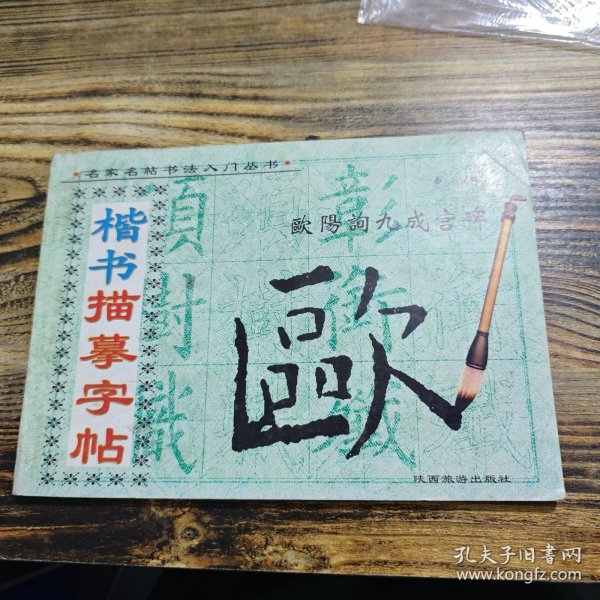 名家名帖书法入门丛书
楷书描摹字帖
歐陽詢九成宫碑
歐
陕西旅游出版社
孔夫子旧書网
www.kongfz.com